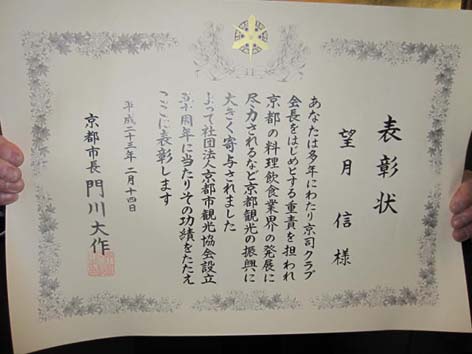 表彰状
望月 信 様
あなたは多年にわたり京司クラブ
会長をはじめとする重責を担われ
京都の料理飲食業界の発展に
尽力されるなど京都観光の振興に
大きく寄与されました
よって社団法人京都市観光協会設立
五十周年に当たりその功績をたたえ
ここに表彰します
平成二十三年 二月十四日
京都市長 門川大作